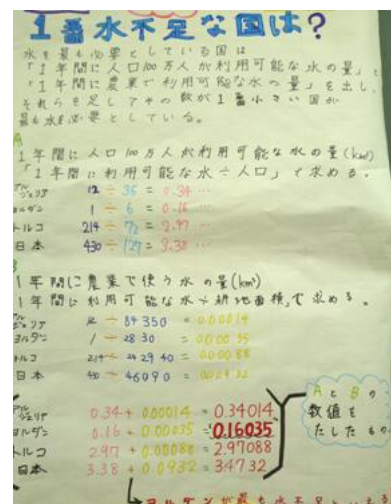 1番水不足な国は?
水を最も必要としている国は
「1年間に人口100万人が利用可能な水の量」と
「1年間に農業で利用可能な水の量」を出し、
それらを足してその数が1番小さい国が
最も水を必要としている。
A
1年間に人口100万人が利用可能な水の量(km³)
「1年間に利用可能な水÷人口」で求める。
アルジェリア 12 ÷ 36 = 0.34…
ヨルダン 1 ÷ 6 = 0.16…
トルコ 214 ÷ 72 = 2.97…
日本 430 ÷ 127 = 3.38…
1年間に農業で使う水の量(km³)
1年間に利用可能な水÷耕地面積」で求める。
アルジェリア 12 ÷ 84350 = 0.00014
ヨルダン 1 ÷ 2830 = 0.00035
トルコ 214 ÷ 242940 = 0.00088
日本 430 ÷ 46090 = 0.00932
アルジェリア 0.34 + 0.00014 = 0.34014
ヨルダン 0.16 + 0.00035 = 0.16035
トルコ 2.97 + 0.00088 = 2.97088
日本 3.38 + 0.0932 = 3.4732
AとBの
数値を
たしたもの
ヨルダンが最も水不足といえる